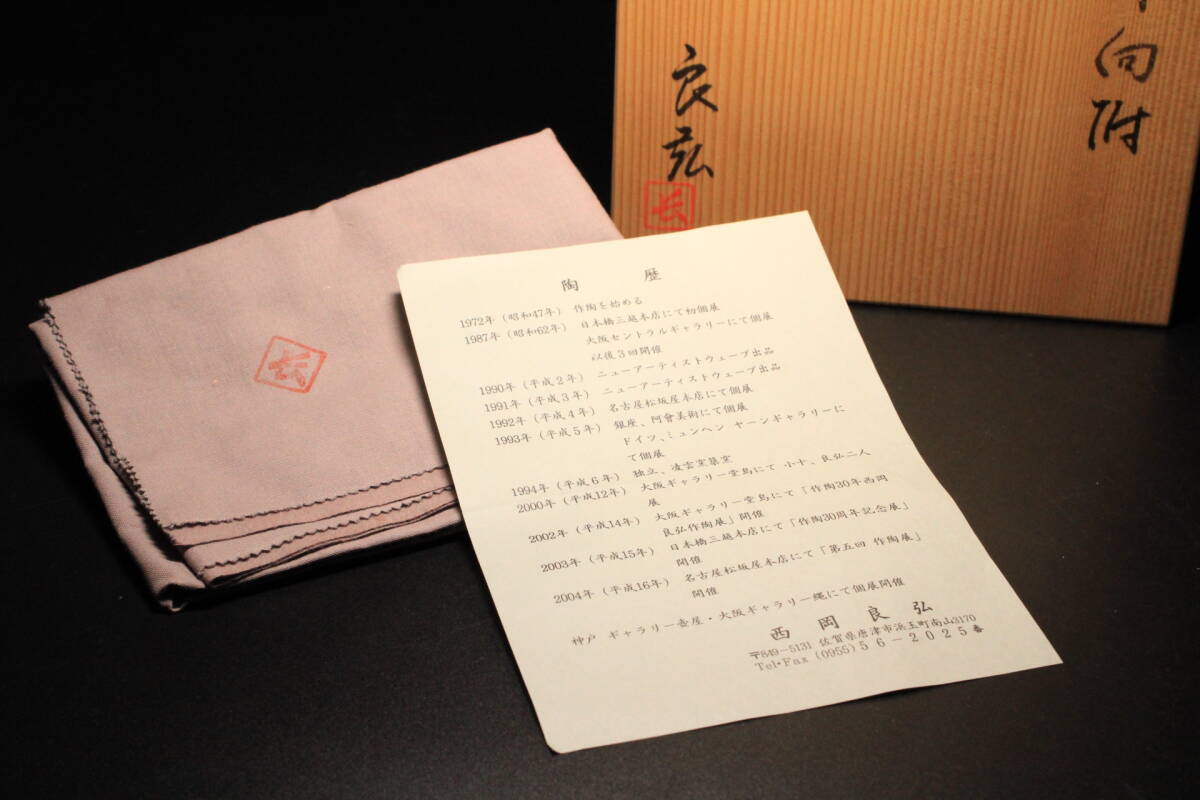 向附
良弘
陶歴
1972年(昭和47年) 作陶を始める
1987年(昭和62年) 日本橋三越本店にて初個展
大阪セントラルギャラリーにて個展
以後3回開催
1990年(平成2年) ニューアーティストウェーブ出品
1991年(平成3年) ニューアーティストウェーブ出品
1992年(平成4年) 名古屋松坂屋本店にて個展
1993年(平成5年) 銀座、阿曾美術にて個展
ドイツ、ミュンヘン ヤーンギャラリーに
て個展
1994年(平成6年) 独立、凌雲窯築窯
2000年(平成12年) 大阪ギャラリー堂島にて 小十、良弘二人
展
2002年(平成14年) 大阪ギャラリー堂島にて「作陶30年西岡
良弘作陶展」開催
2003年(平成15年) 日本橋三越本店にて「作陶30周年記念展」
開催
2004年(平成16年) 名古屋松坂屋本店にて「第五回 作陶展」
開催
神戸 ギャラリー壺屋・大阪ギャラリー縄にて個展開催
西岡良弘
〒849-5131 佐賀県唐津市浜玉町南山3170
Tel・Fax (0955)56-2025番